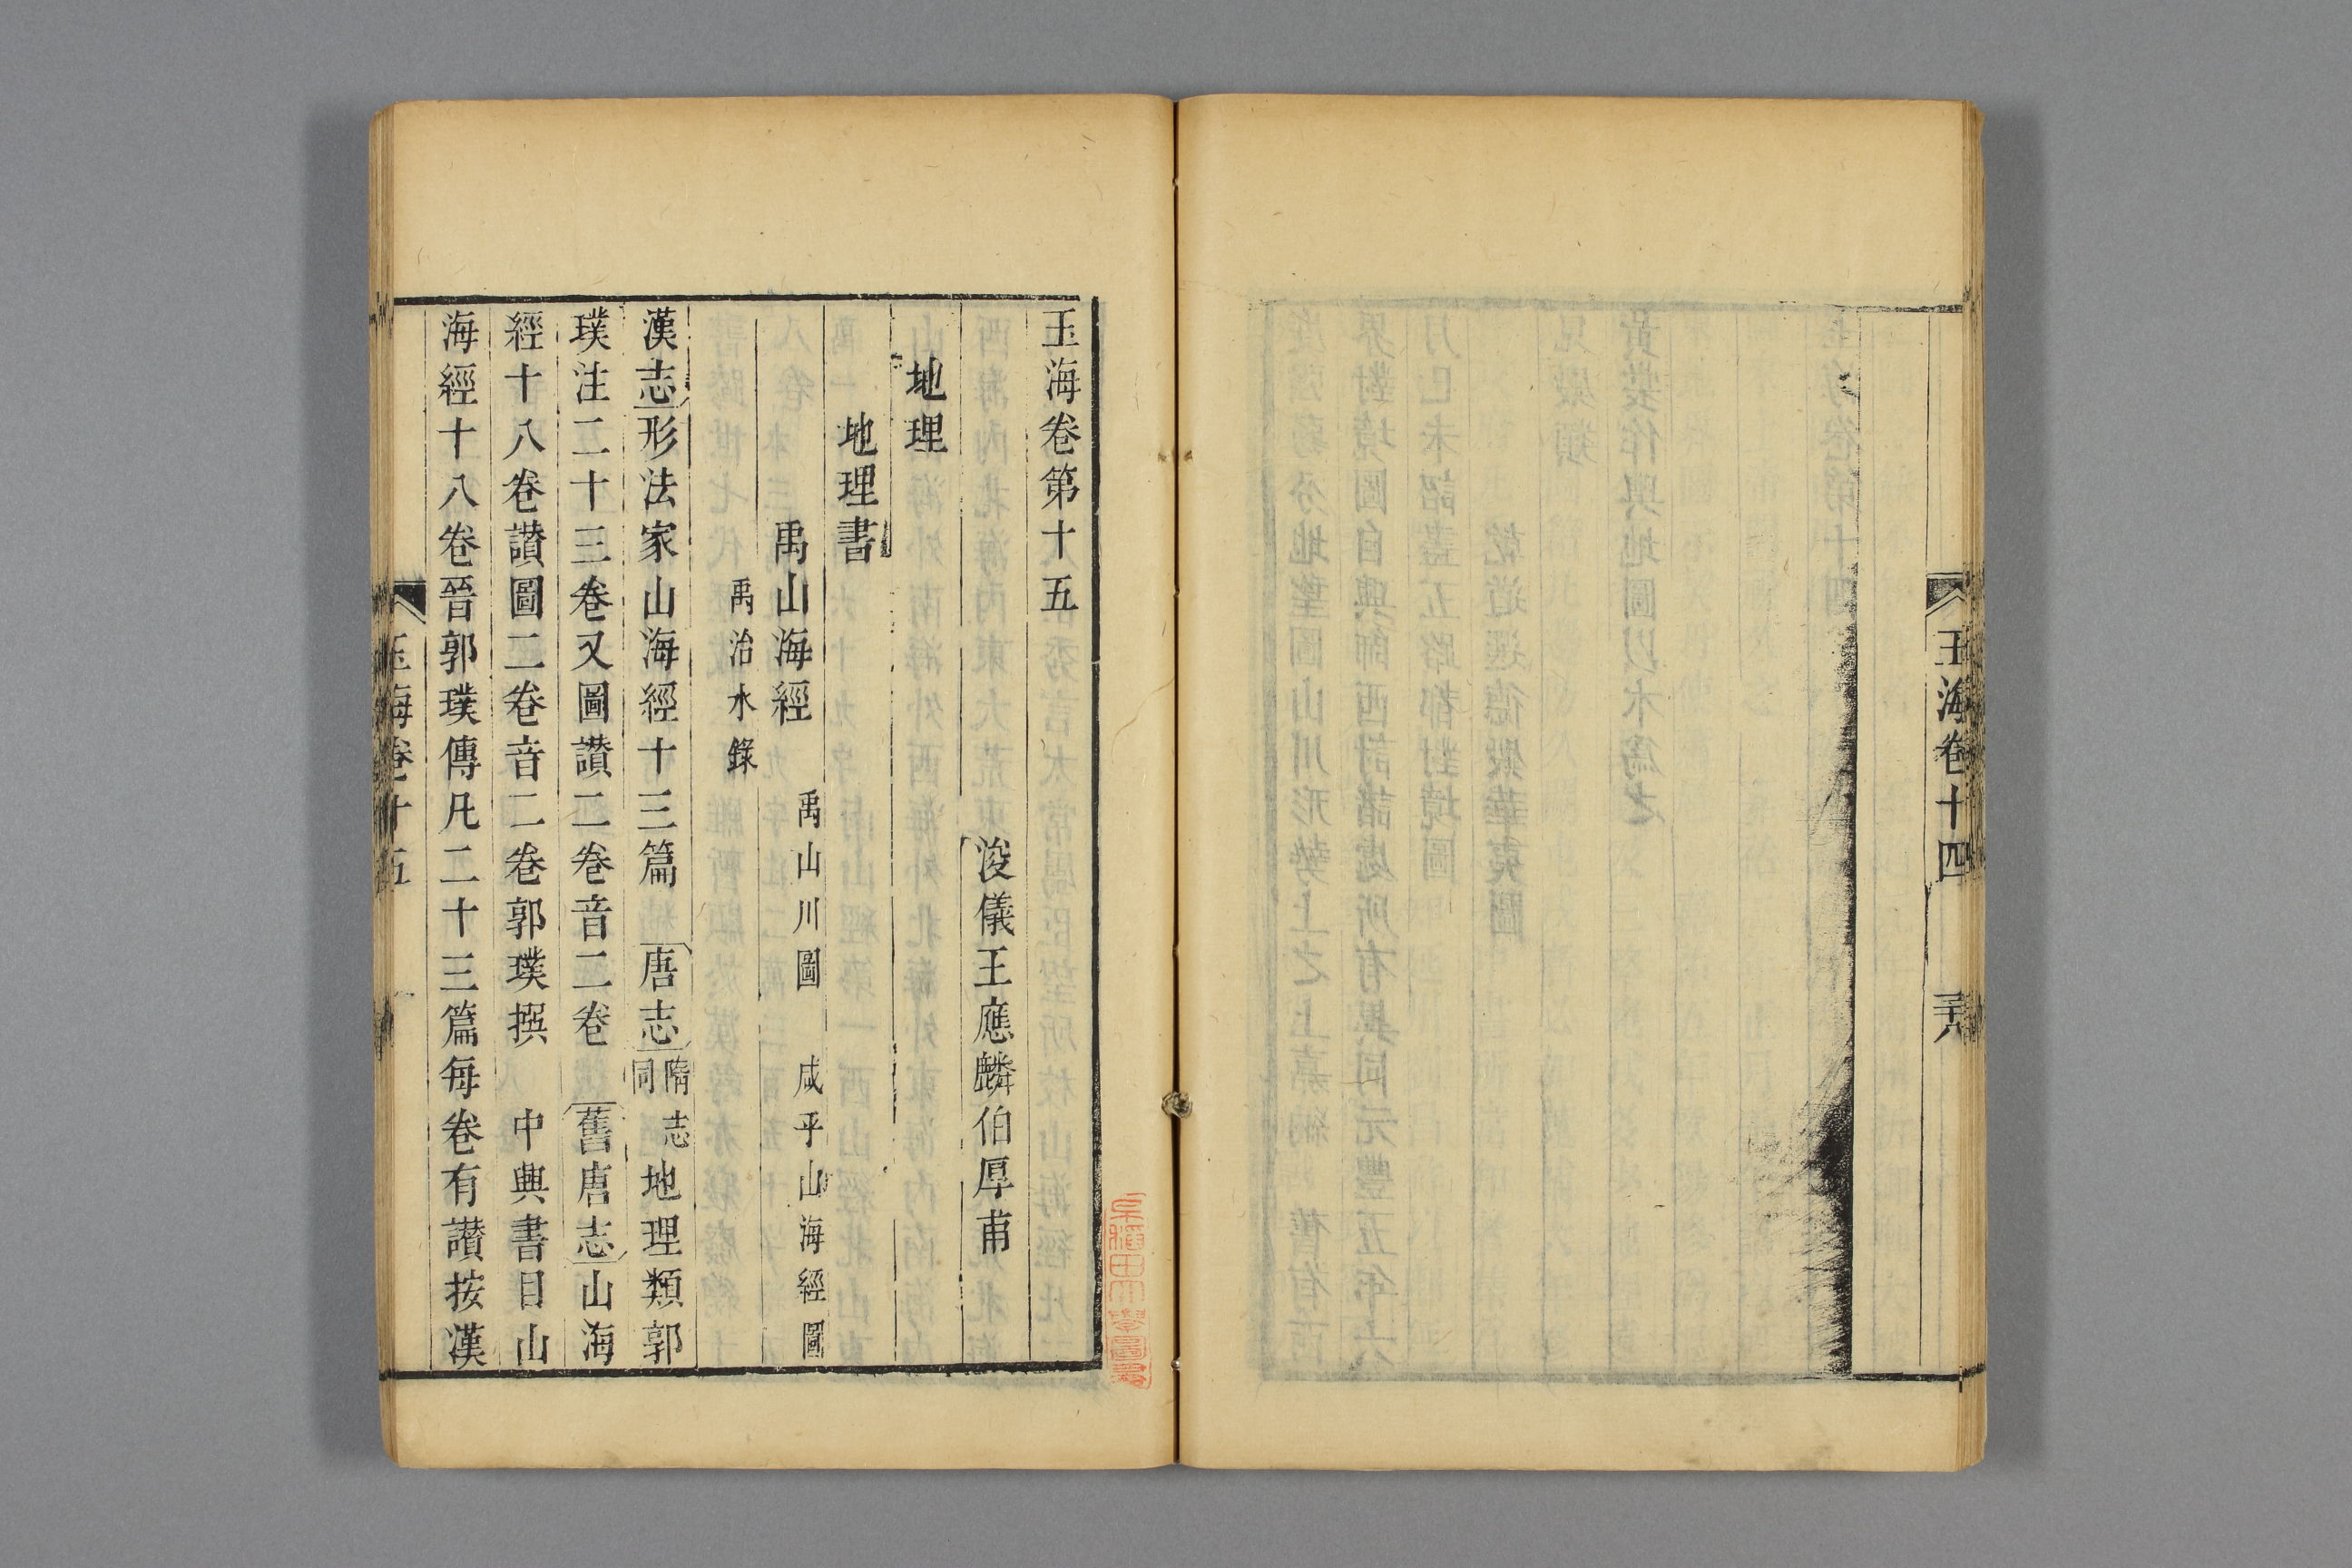 玉海卷十四
玉海卷第十五
浚儀王應麟伯厚甫
地理
地理書
禹山海經　禹山川圖　咸平山海經圖
禹治水錄
漢志形法家山海經十三篇　唐志隋志同地理類郭
璞注二十三卷又圖讚二卷音二卷　舊唐志山海
經十八卷讚圖二卷音二卷郭璞撰　中興書目山
海經十八卷晉郭璞傳凡二十三篇每卷有讚按漢
玉海卷十五
早稻田大學圖書